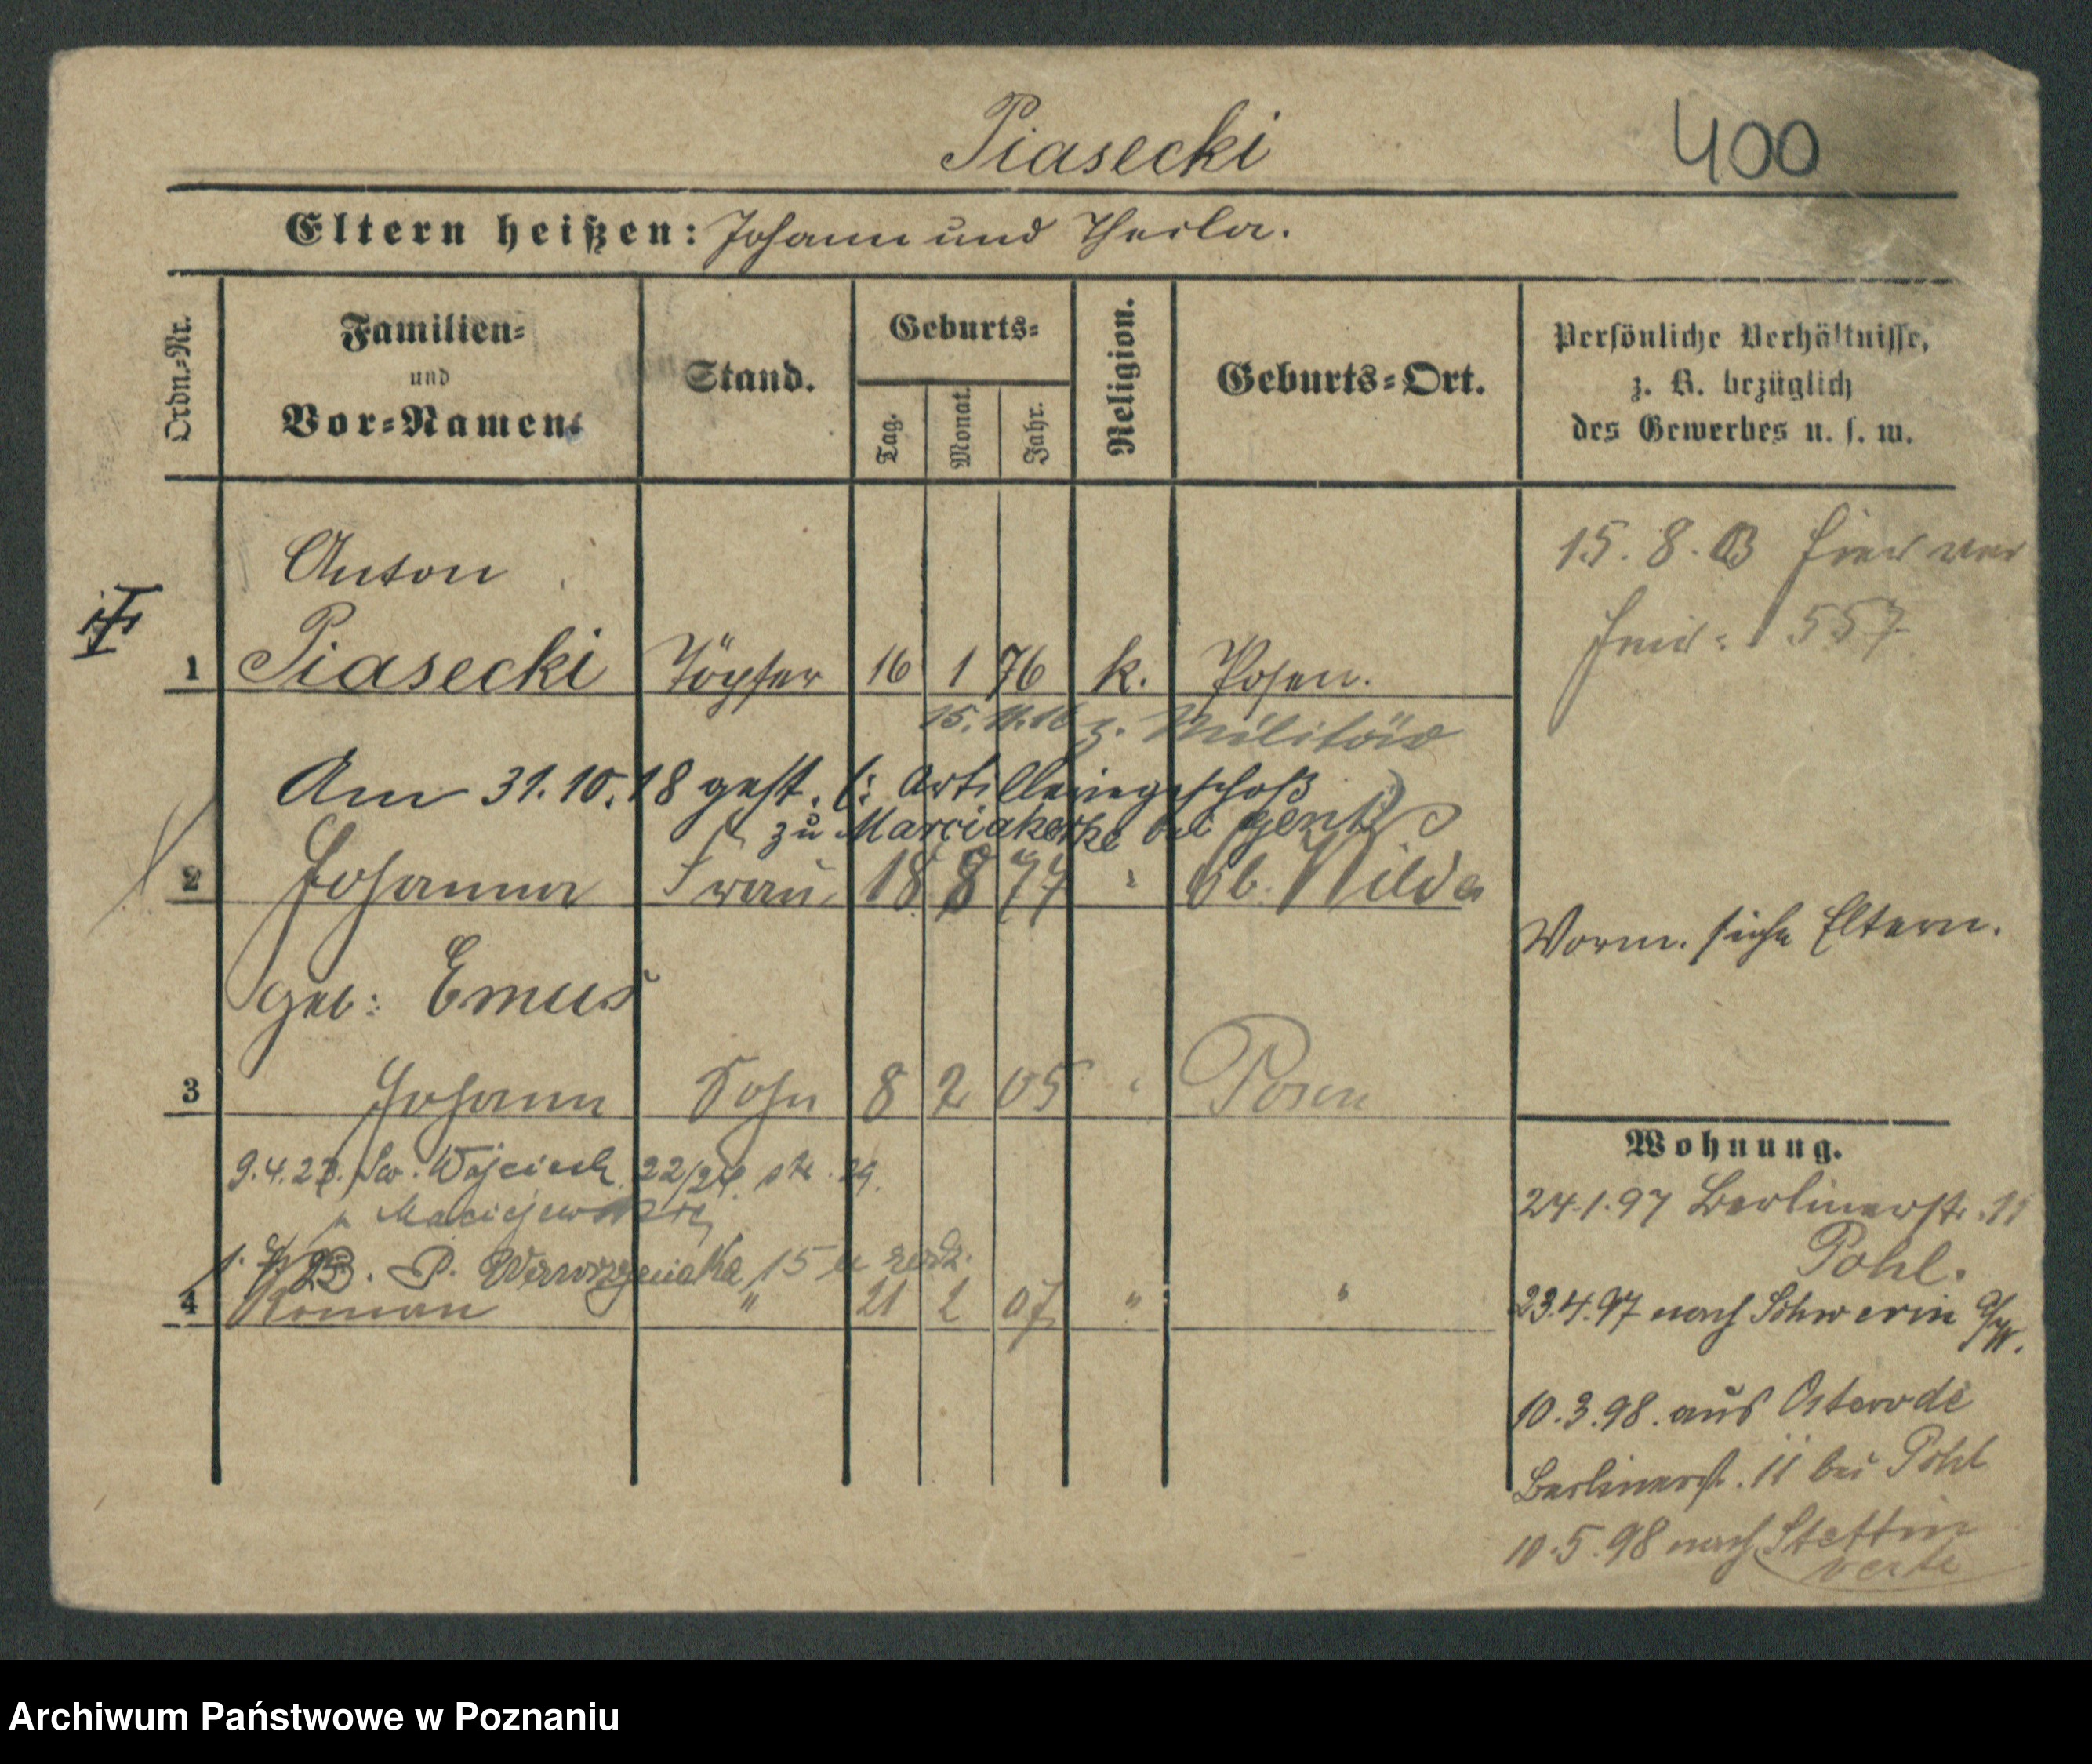 Piasecki 400
Eltern heißen: Johann und Thecla.
Ordn.-Nr.
Familien-
und
Vor-Namen.
Stand.
Geburts-
Tag.
Monat.
Jahr.
Religion.
Geburts-Ort.
Persönliche Verhältnisse,
z. B. bezüglich
des Gewerbes u. s. w.
Anton
1 Piasecki Töpfer 16 1 76 k. Posen.
15. 8. 03
557
15. 11. 16 z. Militär
Am 31.10.18 gest. Artilleriegeschoß
zu Mariakerke bei Gent
2 Johanna Frau 18 8 77 " Wilda
geb: Emus
Vorm. siehe Eltern.
3 Johann Sohn 8 2 05 " Posen
9.4.23. Św. Wojciech 22/24. str. 29.
p Maciejewskiej
P. Wawrzyniaka 15 u
4 Roman " 21 2 07 " "
Wohnung.
24.1.97 Berlinerstr. 11
Pohl.
23.4.97 nach Schwerin
10.3.98. aus Osterode
Berlinerstr. 11 bei Pohl
10.5.98 nach Stettin
verte
Archiwum Państwowe w Poznaniu